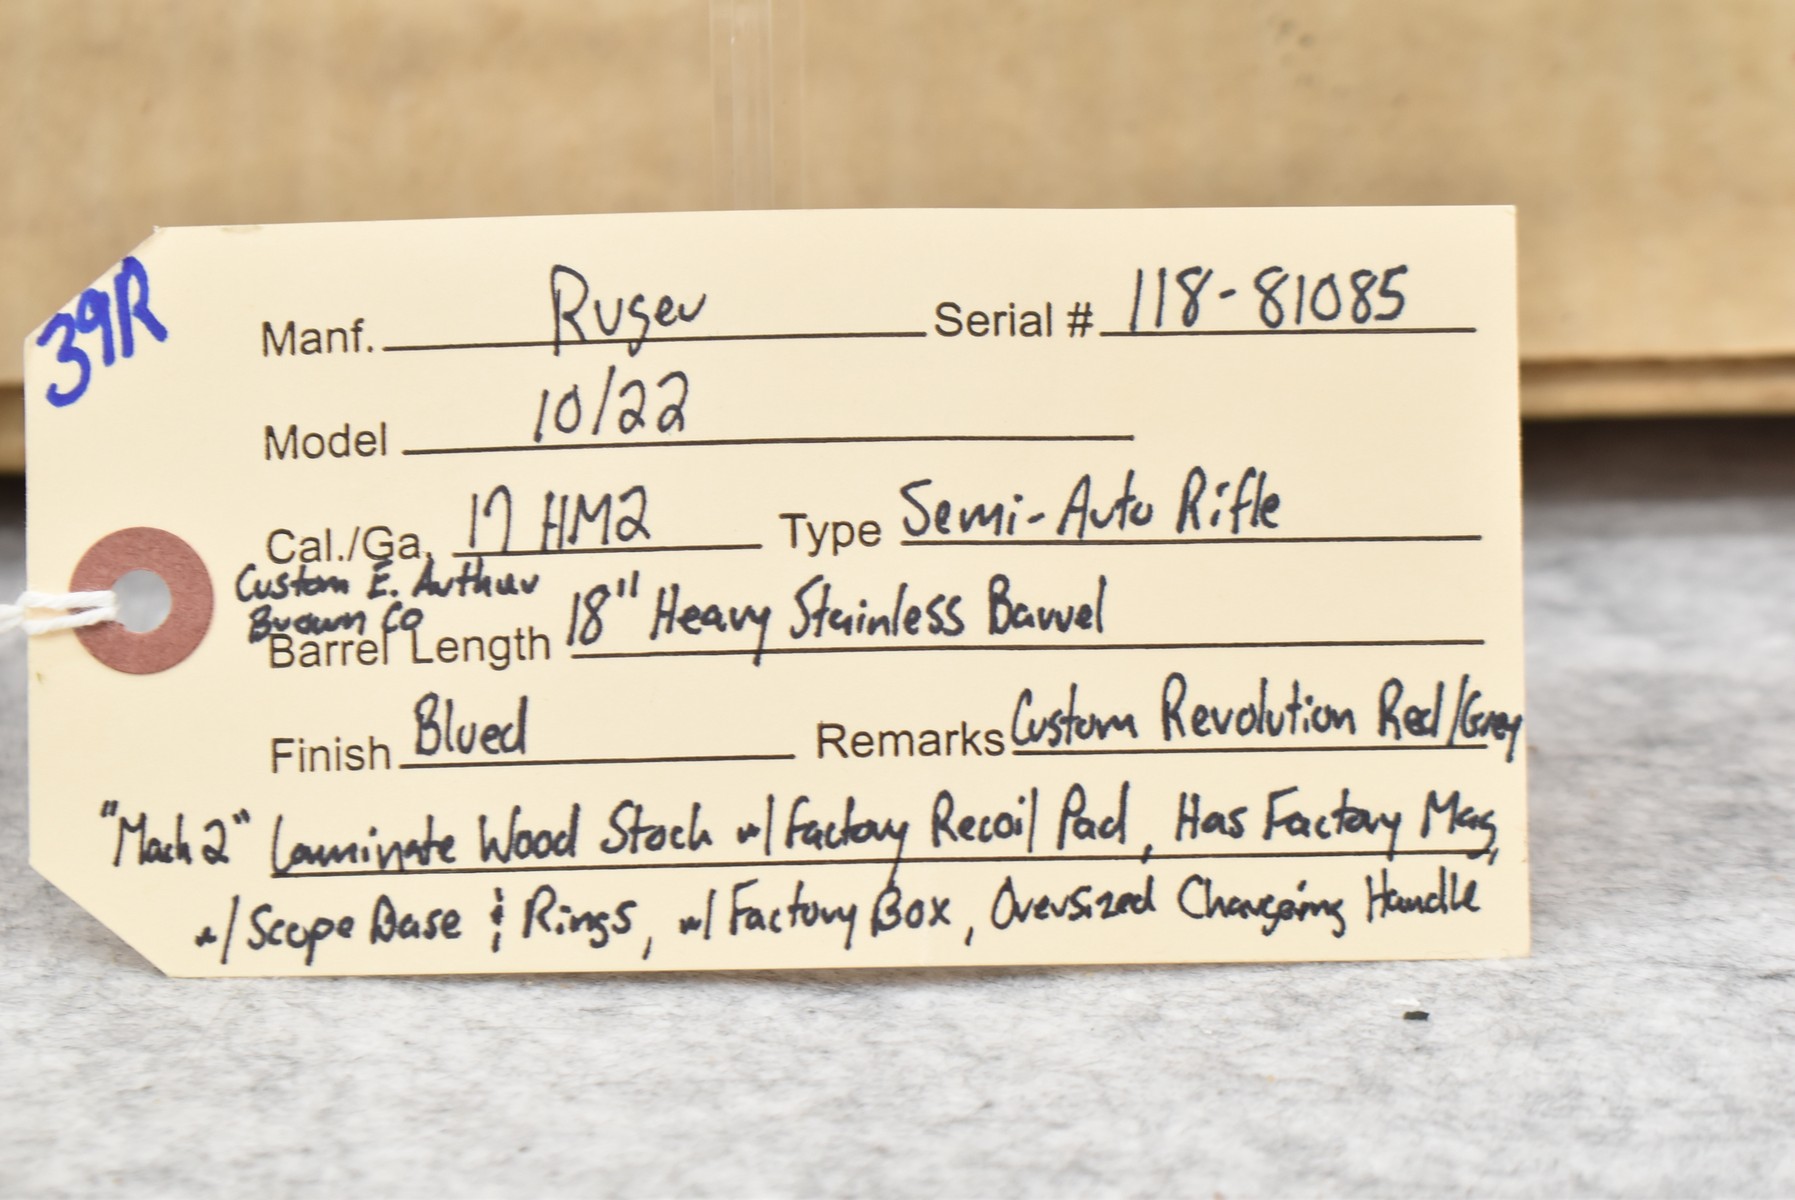 39R
Manf. Ruger Serial # 118-81085
Model 10/22
Cal./Ga. 17 HM2 Type Semi-Auto Rifle
Custom E. Arthur
Brown Co
Barrel Length 18" Heavy Stainless Barrel
Finish Blued Remarks Custom Revolution Red/Grey
"Mach 2" Laminate Wood Stock w/ Factory Recoil Pad, Has Factory Mag,
w/ Scope Base & Rings, w/ Factory Box, Oversized Charging Handle